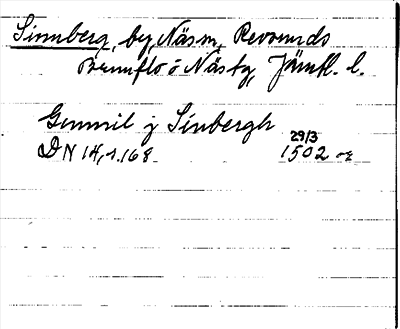 Sinnberg, by, Näsm, Revsunds
Brunflo o Näs tg, Jämtl. l.
Gunnil j Sinbergh
29/3
DN 14, s. 168. 1502 or